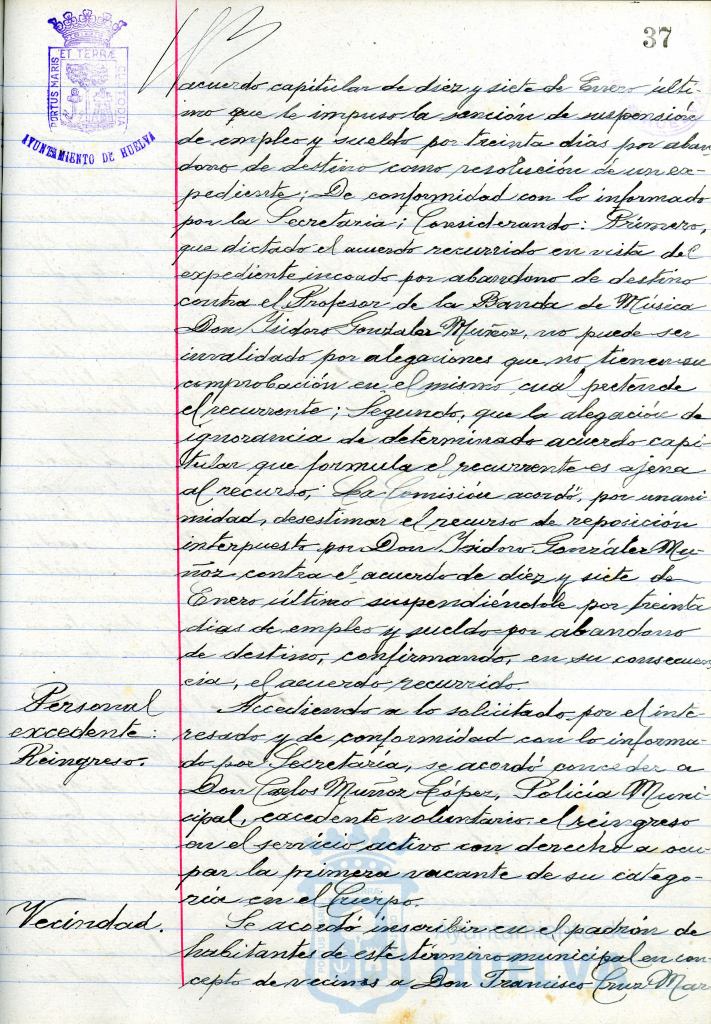 37
ET TERRÆ
PORTUS MARIS
CUSTODIA
AYUNTAMIENTO DE HUELVA
acuerdo capitular de diez y siete de Enero últi-
mo que le impuso la sanción de suspensión
de empleo y sueldo por treinta dias por aban
dono de destino como resolución de un ex-
pediente; De conformidad con lo informado
por la Secretaria; Considerando: Primero,
que dictado el acuerdo recurrido en vista del
expediente incoado por abandono de destino
contra el Profesor de la Banda de Música
Don Isidoro Gonzalez Muñoz, no puede ser
invalidado por alegaciones que no tienen su
comprobación en el mismo cual pretende
el recurrente; Segundo, que la alegación de
ignorancia de determinado acuerdo capi-
tular que formula el recurrente es ajena
al recurso; La Comisión acordó, por unani
midad, desestimar el recurso de reposición
interpuesto por Don Isidoro González Mu-
ñoz contra el acuerdo de diez y siete de
Enero último suspendiéndole por treinta
dias de empleo y sueldo por abandono
de destino, confirmando, en su consecuen
cia, el acuerdo recurrido.
Personal
excedente:
Reingreso.
Accediendo a lo solicitado por el inte-
resado y de conformidad con lo informa-
do por Secretaría, se acordó conceder a
Don Carlos Muñoz López, Policía Muni-
cipal, excedente voluntario, el reingreso
en el servicio activo con derecho a ocu-
par la primera vacante de su catego-
ría en el Cuerpo.
Vecindad.
Se acordó inscribir en el padrón de
habitantes de este término municipal en con
cepto de vecinos a Don Francisco Cruz Mar
Ayuntamiento de
HUELVA